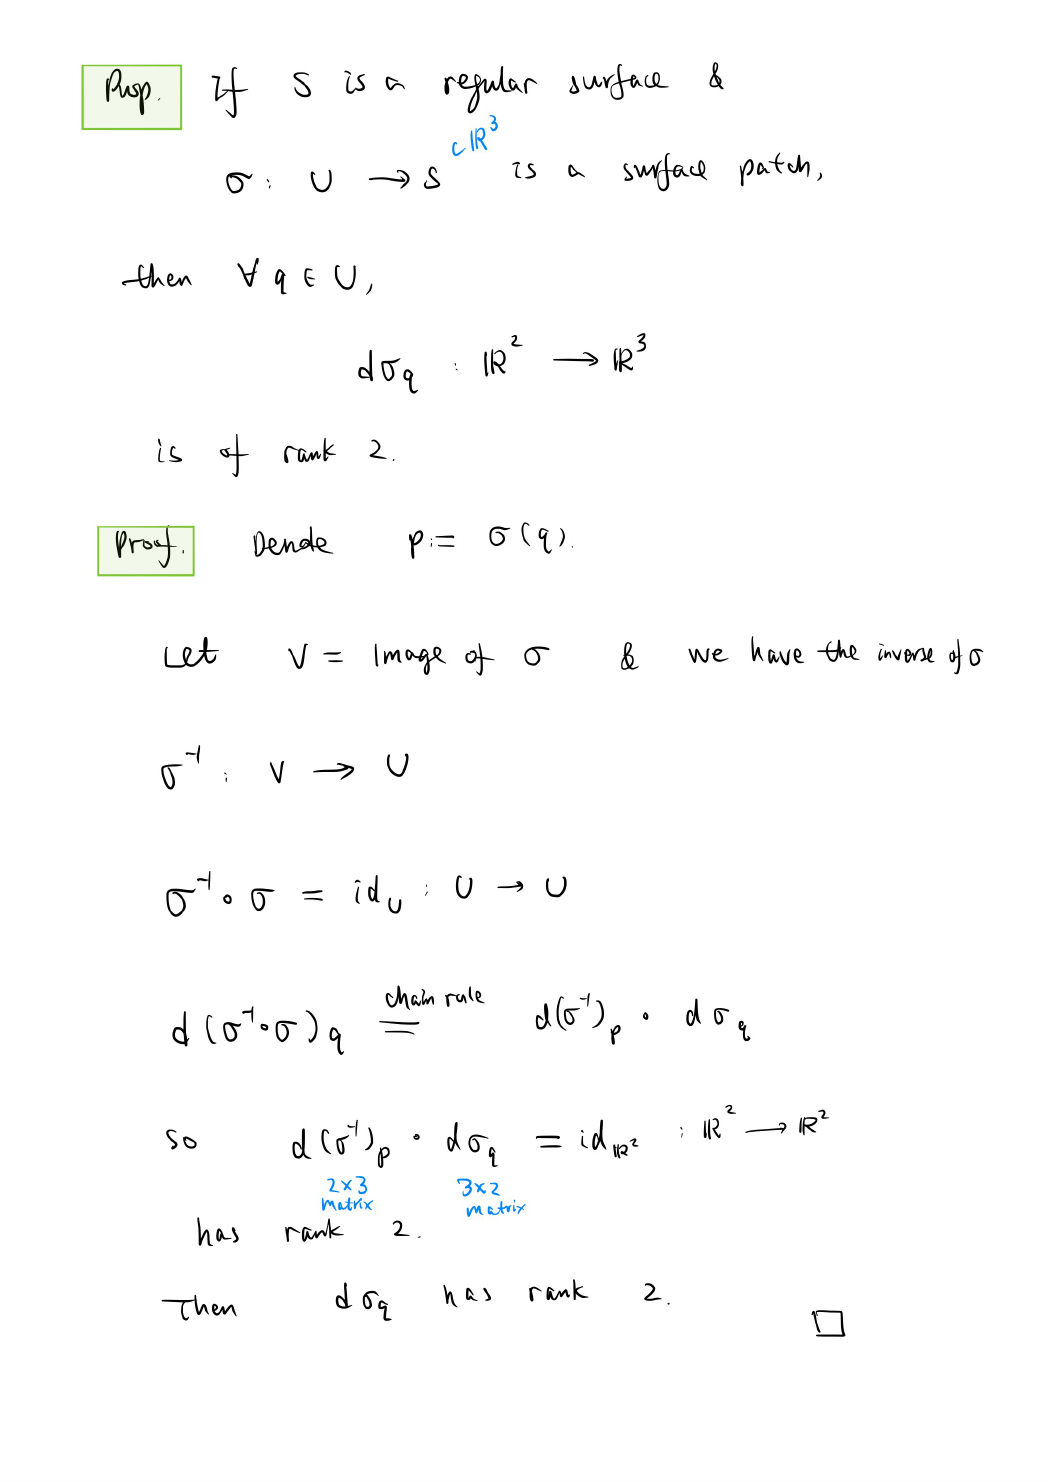 Prop. If S is a regular surface &
σ : U → S ⊂ ℝ³ is a surface patch,
then ∀ q ∈ U,
dσ_q : ℝ² → ℝ³
is of rank 2.
Proof. Denote p := σ(q).
Let V = Image of σ & we have the inverse of σ
σ⁻¹ : V → U
σ⁻¹ ∘ σ = id_U : U → U
chain rule
d(σ⁻¹∘σ)_q = d(σ⁻¹)_p · dσ_q
so d(σ⁻¹)_p · dσ_q = id_ℝ² : ℝ² → ℝ²
2×3 3×2
matrix matrix
has rank 2.
Then dσ_q has rank 2.
□